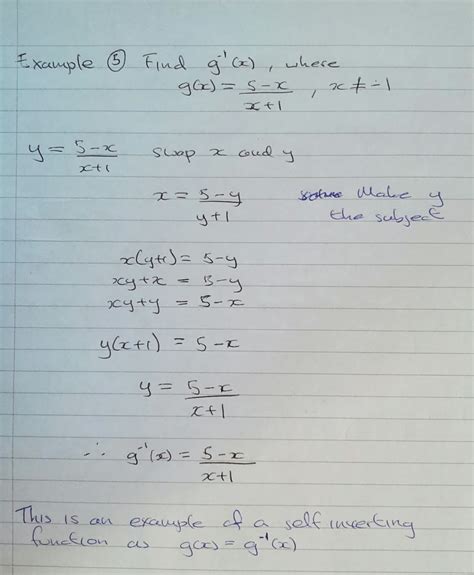 Example ⑤ Find g⁻¹(x), where
g(x) = (5-x)/(x+1), x ≠ -1
y = (5-x)/(x+1) swap x and y
x = (5-y)/(y+1) Make y
the subject
x(y+1) = 5-y
xy+x = 5-y
xy+y = 5-x
y(x+1) = 5-x
y = (5-x)/(x+1)
∴ g⁻¹(x) = (5-x)/(x+1)
This is an example of a self inverting
function as g(x) = g⁻¹(x)